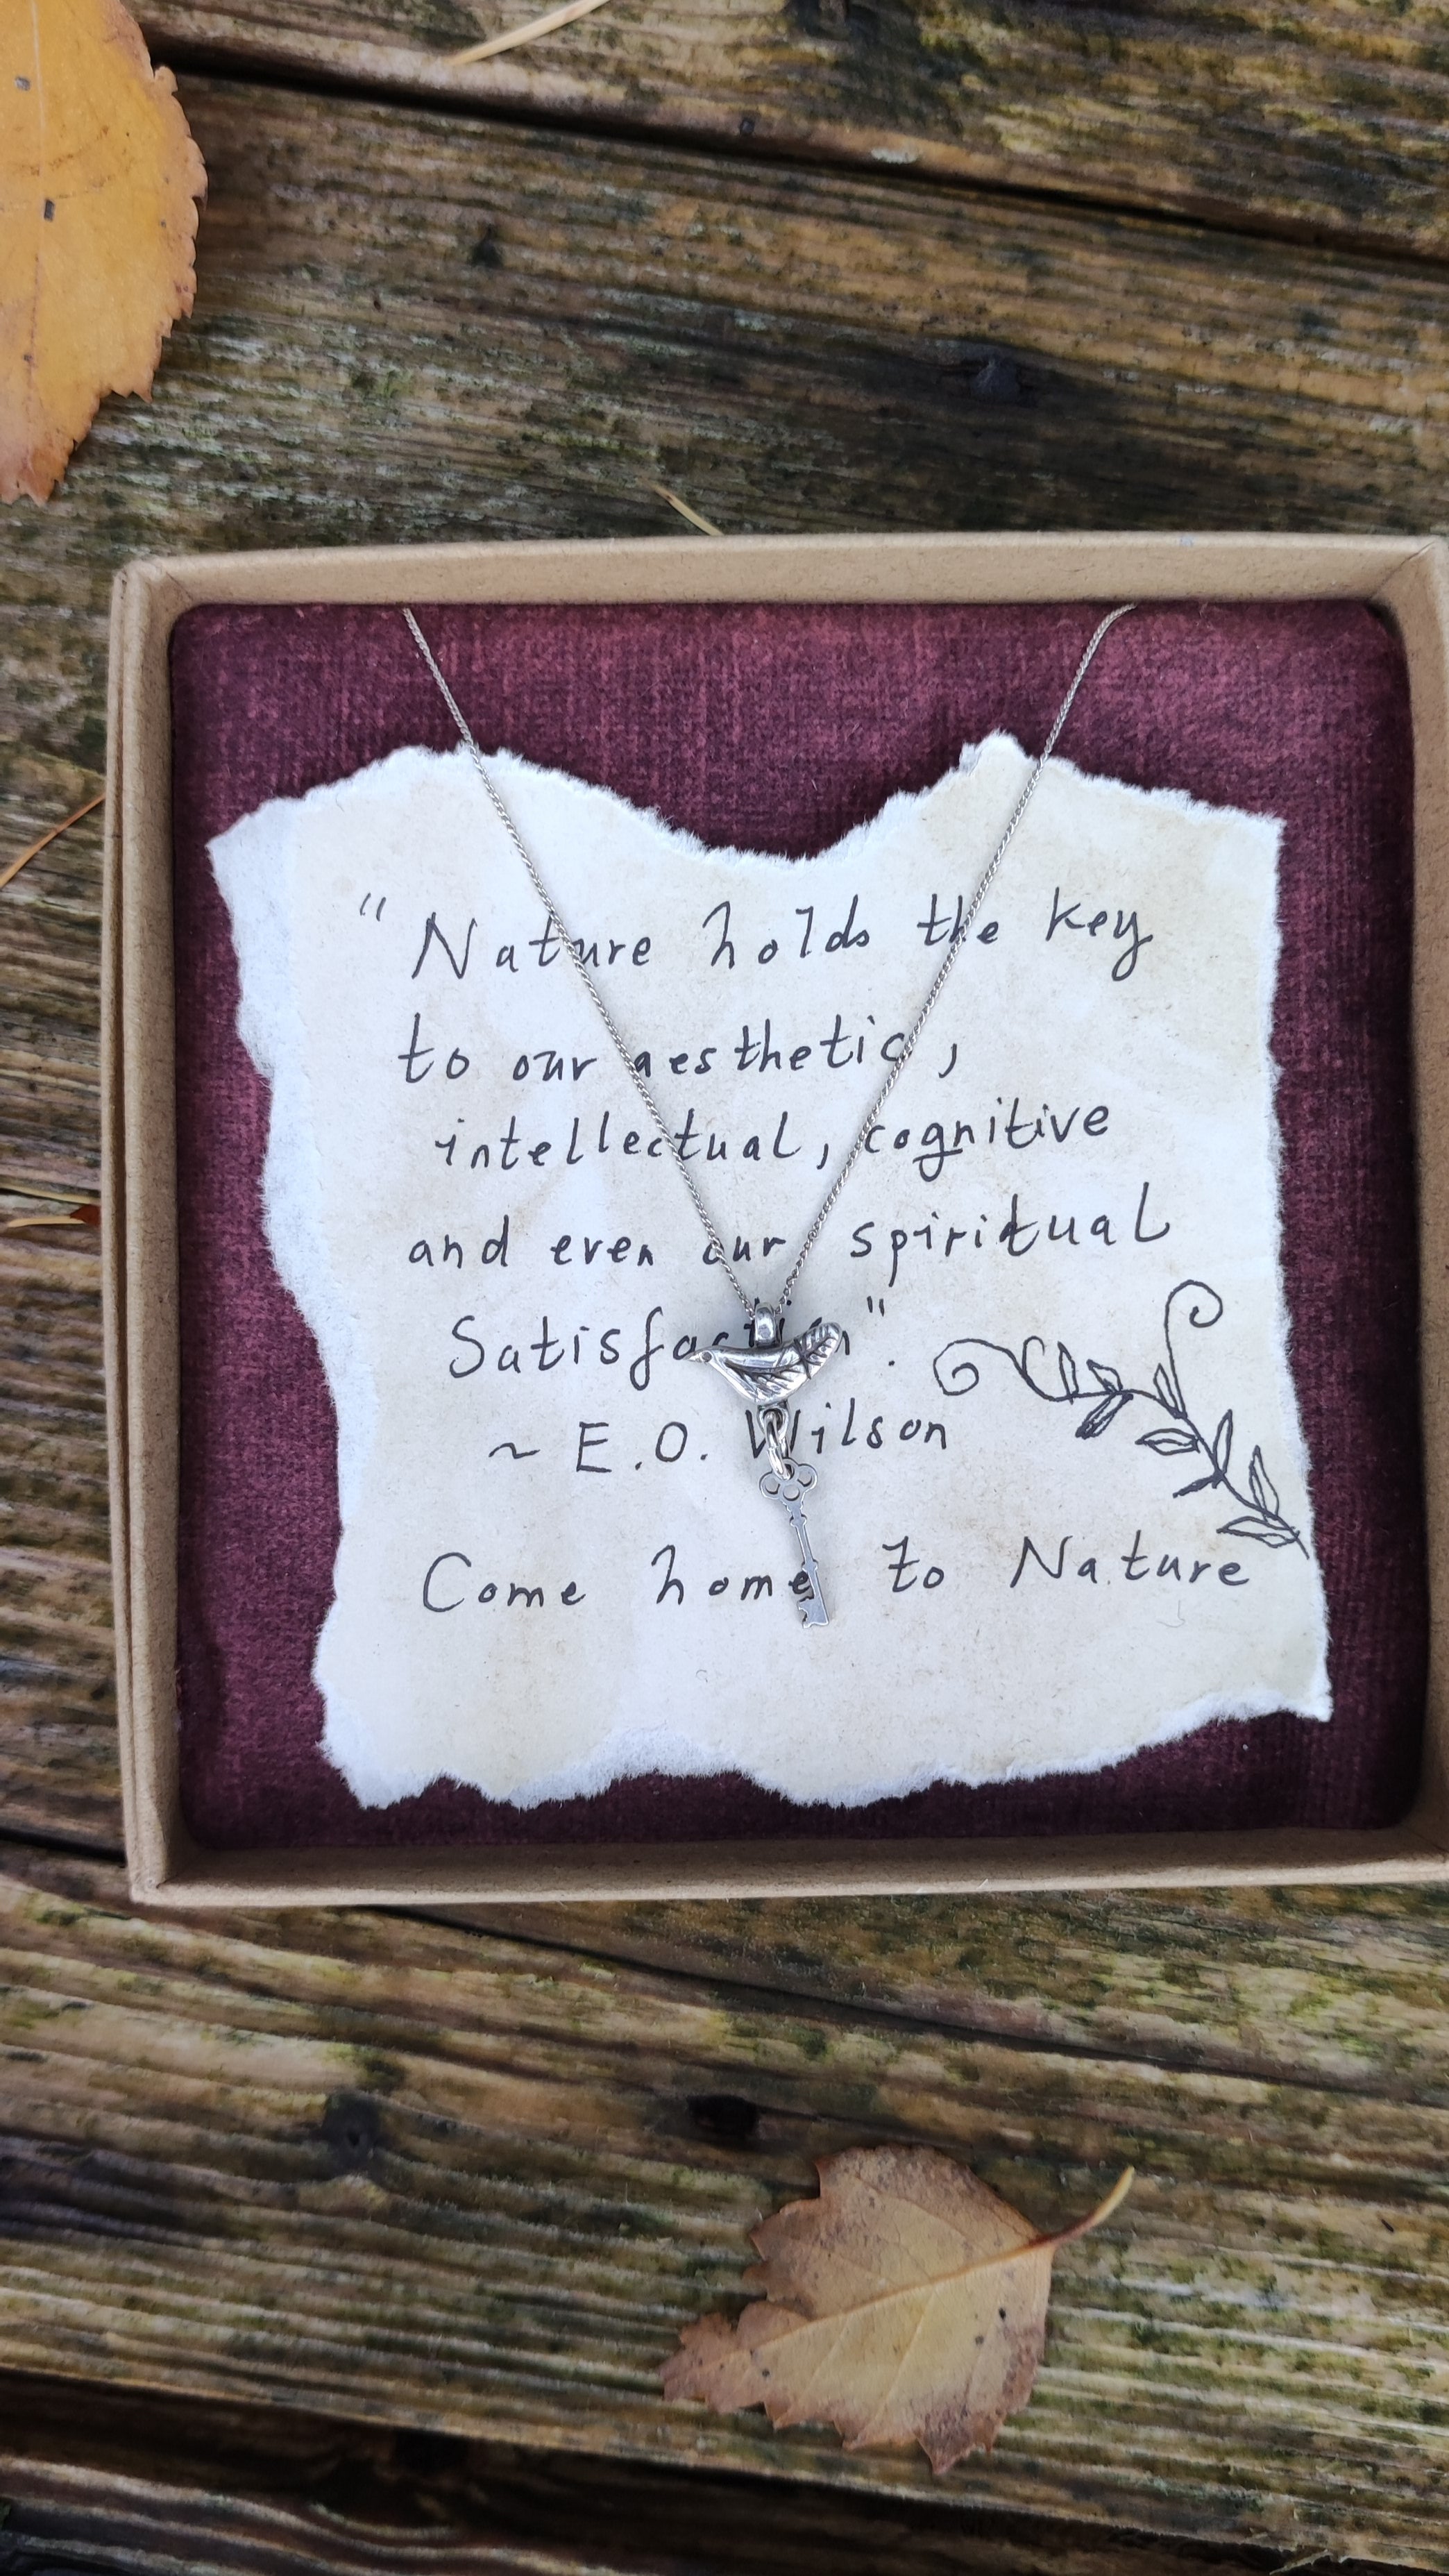 "Nature holds the key
to our aesthetic,
intellectual, cognitive
and even our spiritual
Satisfaction".
~ E.O. Wilson
Come home to Nature